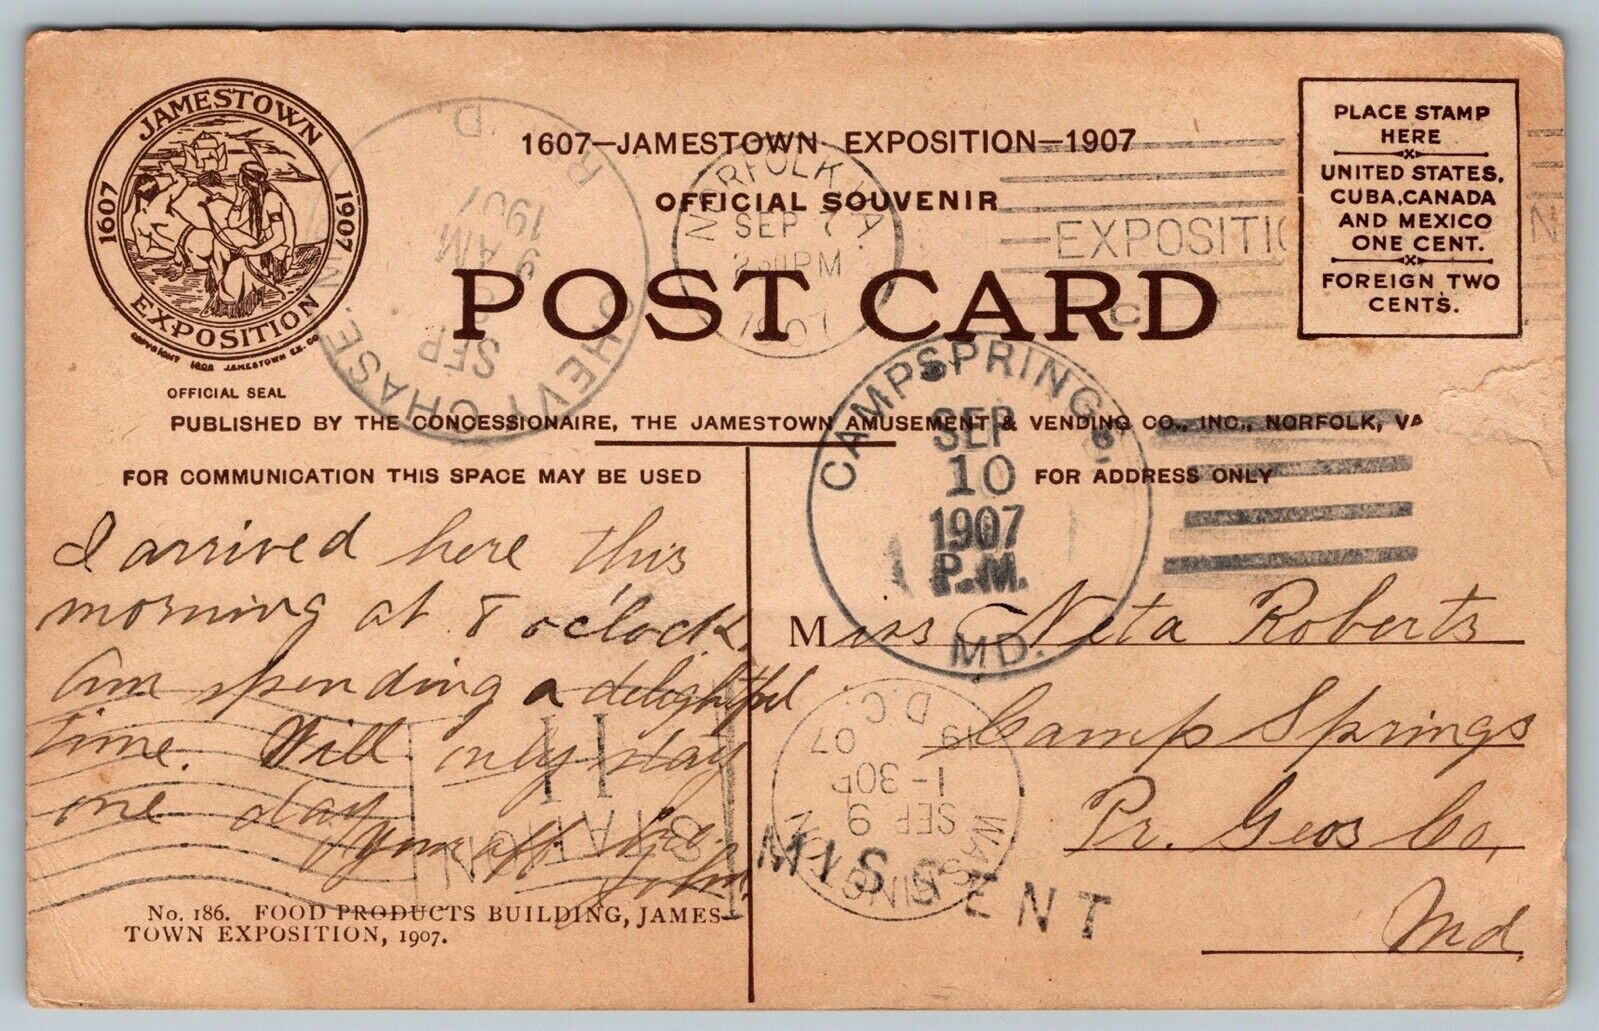 JAMESTOWN
1607 1907
EXPOSITION
COPYRIGHT JAMESTOWN EX. CO.
OFFICIAL SEAL
1607—JAMESTOWN EXPOSITION—1907
OFFICIAL SOUVENIR
POST CARD
PLACE STAMP
HERE
UNITED STATES,
CUBA, CANADA
AND MEXICO
ONE CENT.
FOREIGN TWO
CENTS.
R. D.
9 AM
1907
SEP
CHEVY CHASE.
NORFOLK, VA.
SEP 7
PM
1907
EXPOSITI
N
PUBLISHED BY THE CONCESSIONAIRE, THE JAMESTOWN AMUSEMENT & VENDING CO., INC., NORFOLK, VA
CAMPSPRINGS,
SEP
10
1907
P.M.
MD.
FOR COMMUNICATION THIS SPACE MAY BE USED
FOR ADDRESS ONLY
I arrived here this
morning at 8 o'clock,
Am spending a delightful
time. Will only stay
one day
your aff.
John.
Miss Neta Roberts
Camp Springs
Pr. Geos Co,
Md,
WASHINGTON
D.C.
SEP 9
1-30P
07
STATION
MISSENT
No. 186. FOOD PRODUCTS BUILDING, JAMES-
TOWN EXPOSITION, 1907.